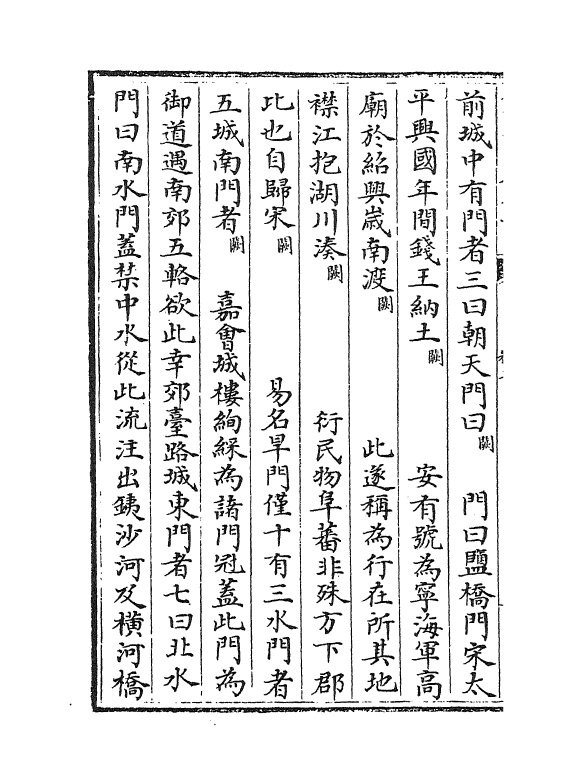 前城中有門者三曰朝天門曰闕 門曰鹽橋門宋太
平興國年間錢王納土闕 安有號為寧海軍高
廟於紹興歲南渡闕 此遂稱為行在所其地
襟江抱湖川湊闕 衍民物阜蕃非殊方下郡
比也自歸宋闕 易名旱門僅十有三水門者
五城南門者闕 嘉會城樓絢綵為諸門冠蓋此門為
御道遇南郊五輅欲此幸郊臺路城東門者七曰北水
門曰南水門蓋禁中水從此流注出銕沙河及橫河橋